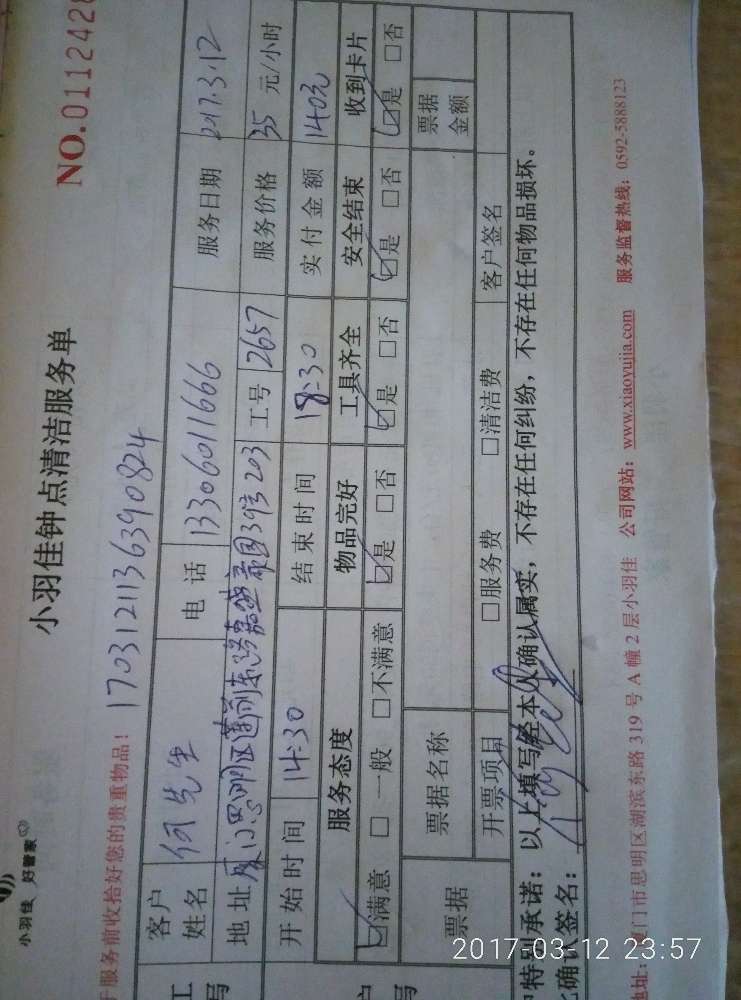 小羽佳 好管家
小羽佳钟点清洁服务单
NO.0112428
于服务前收拾好您的贵重物品！ 1703121136390824
客户姓名 何先生 电话 13306011666 服务日期 2017.3.12
地址 厦门思明区莲前东路嘉盛豪园39号203 工号 2657 服务价格 35 元/小时
开始时间 14:30 结束时间 18:30 实付金额 140元
服务态度 物品完好 工具齐全 安全结束 收到卡片
☑满意 □一般 □不满意 ☑是 □否 ☑是 □否 ☑是 □否 ☑是 □否
票据 票据名称 票据金额
开票项目 □服务费 □清洁费 客户签名
特别承诺：以上填写经本人确认属实，不存在任何纠纷，不存在任何物品损坏。
确认签名：
厦门市思明区湖滨东路 319 号 A 幢 2 层小羽佳 公司网站：www.xiaoyujia.com 服务监督热线：0592-5888123
2017-03-12 23:57